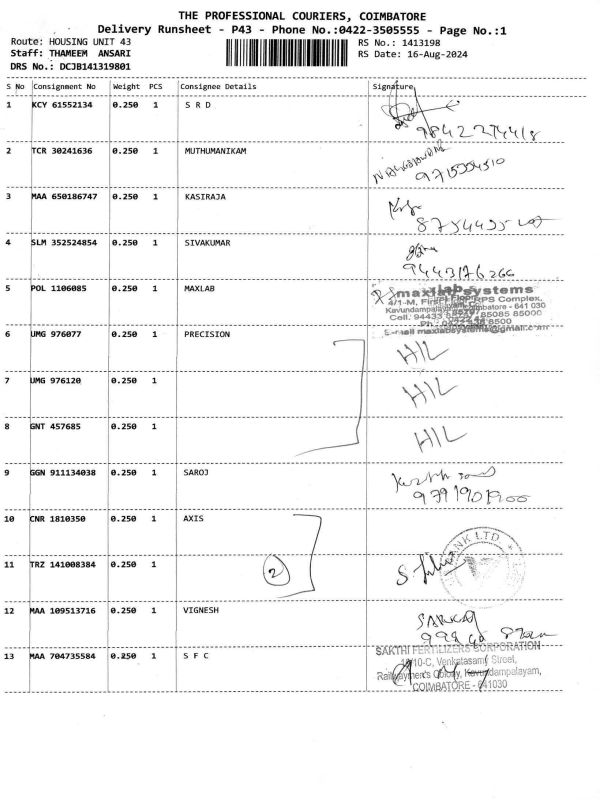 THE PROFESSIONAL COURIERS, COIMBATORE
Delivery Runsheet - P43 - Phone No.:0422-3505555 - Page No.:1
Route: HOUSING UNIT 43 RS No.: 1413198
Staff: THAMEEM ANSARI RS Date: 16-Aug-2024
DRS No.: DCJB141319801
S No Consignment No Weight PCS Consignee Details Signature
1 KCY 61552134 0.250 1 S R D
9842274418
2 TCR 30241636 0.250 1 MUTHUMANIKAM
3 MAA 650186747 0.250 1 KASIRAJA
4 SLM 352524854 0.250 1 SIVAKUMAR
9443176266
5 POL 1106085 0.250 1 MAXLAB
maxlab systems
4/1-M, First Floor, RPS Complex,
Kavundampalayam, Coimbatore - 641 030
85085 85000
E-mail maxlabsystems@gmail.com
6 UMG 976077 0.250 1 PRECISION HIL
7 UMG 976120 0.250 1 HIL
8 GNT 457685 0.250 1 HIL
9 GGN 911134038 0.250 1 SAROJ
9791901900
10 CNR 1810350 0.250 1 AXIS
BANK LTD
11 TRZ 141008384 0.250 1 2
12 MAA 109513716 0.250 1 VIGNESH
13 MAA 704735584 0.250 1 S F C
SAKTHI FERTILIZERS CORPORATION
10-C, Venkatasamy Street,
Railwaymen's Colony, Kavundampalayam,
COIMBATORE - 641030